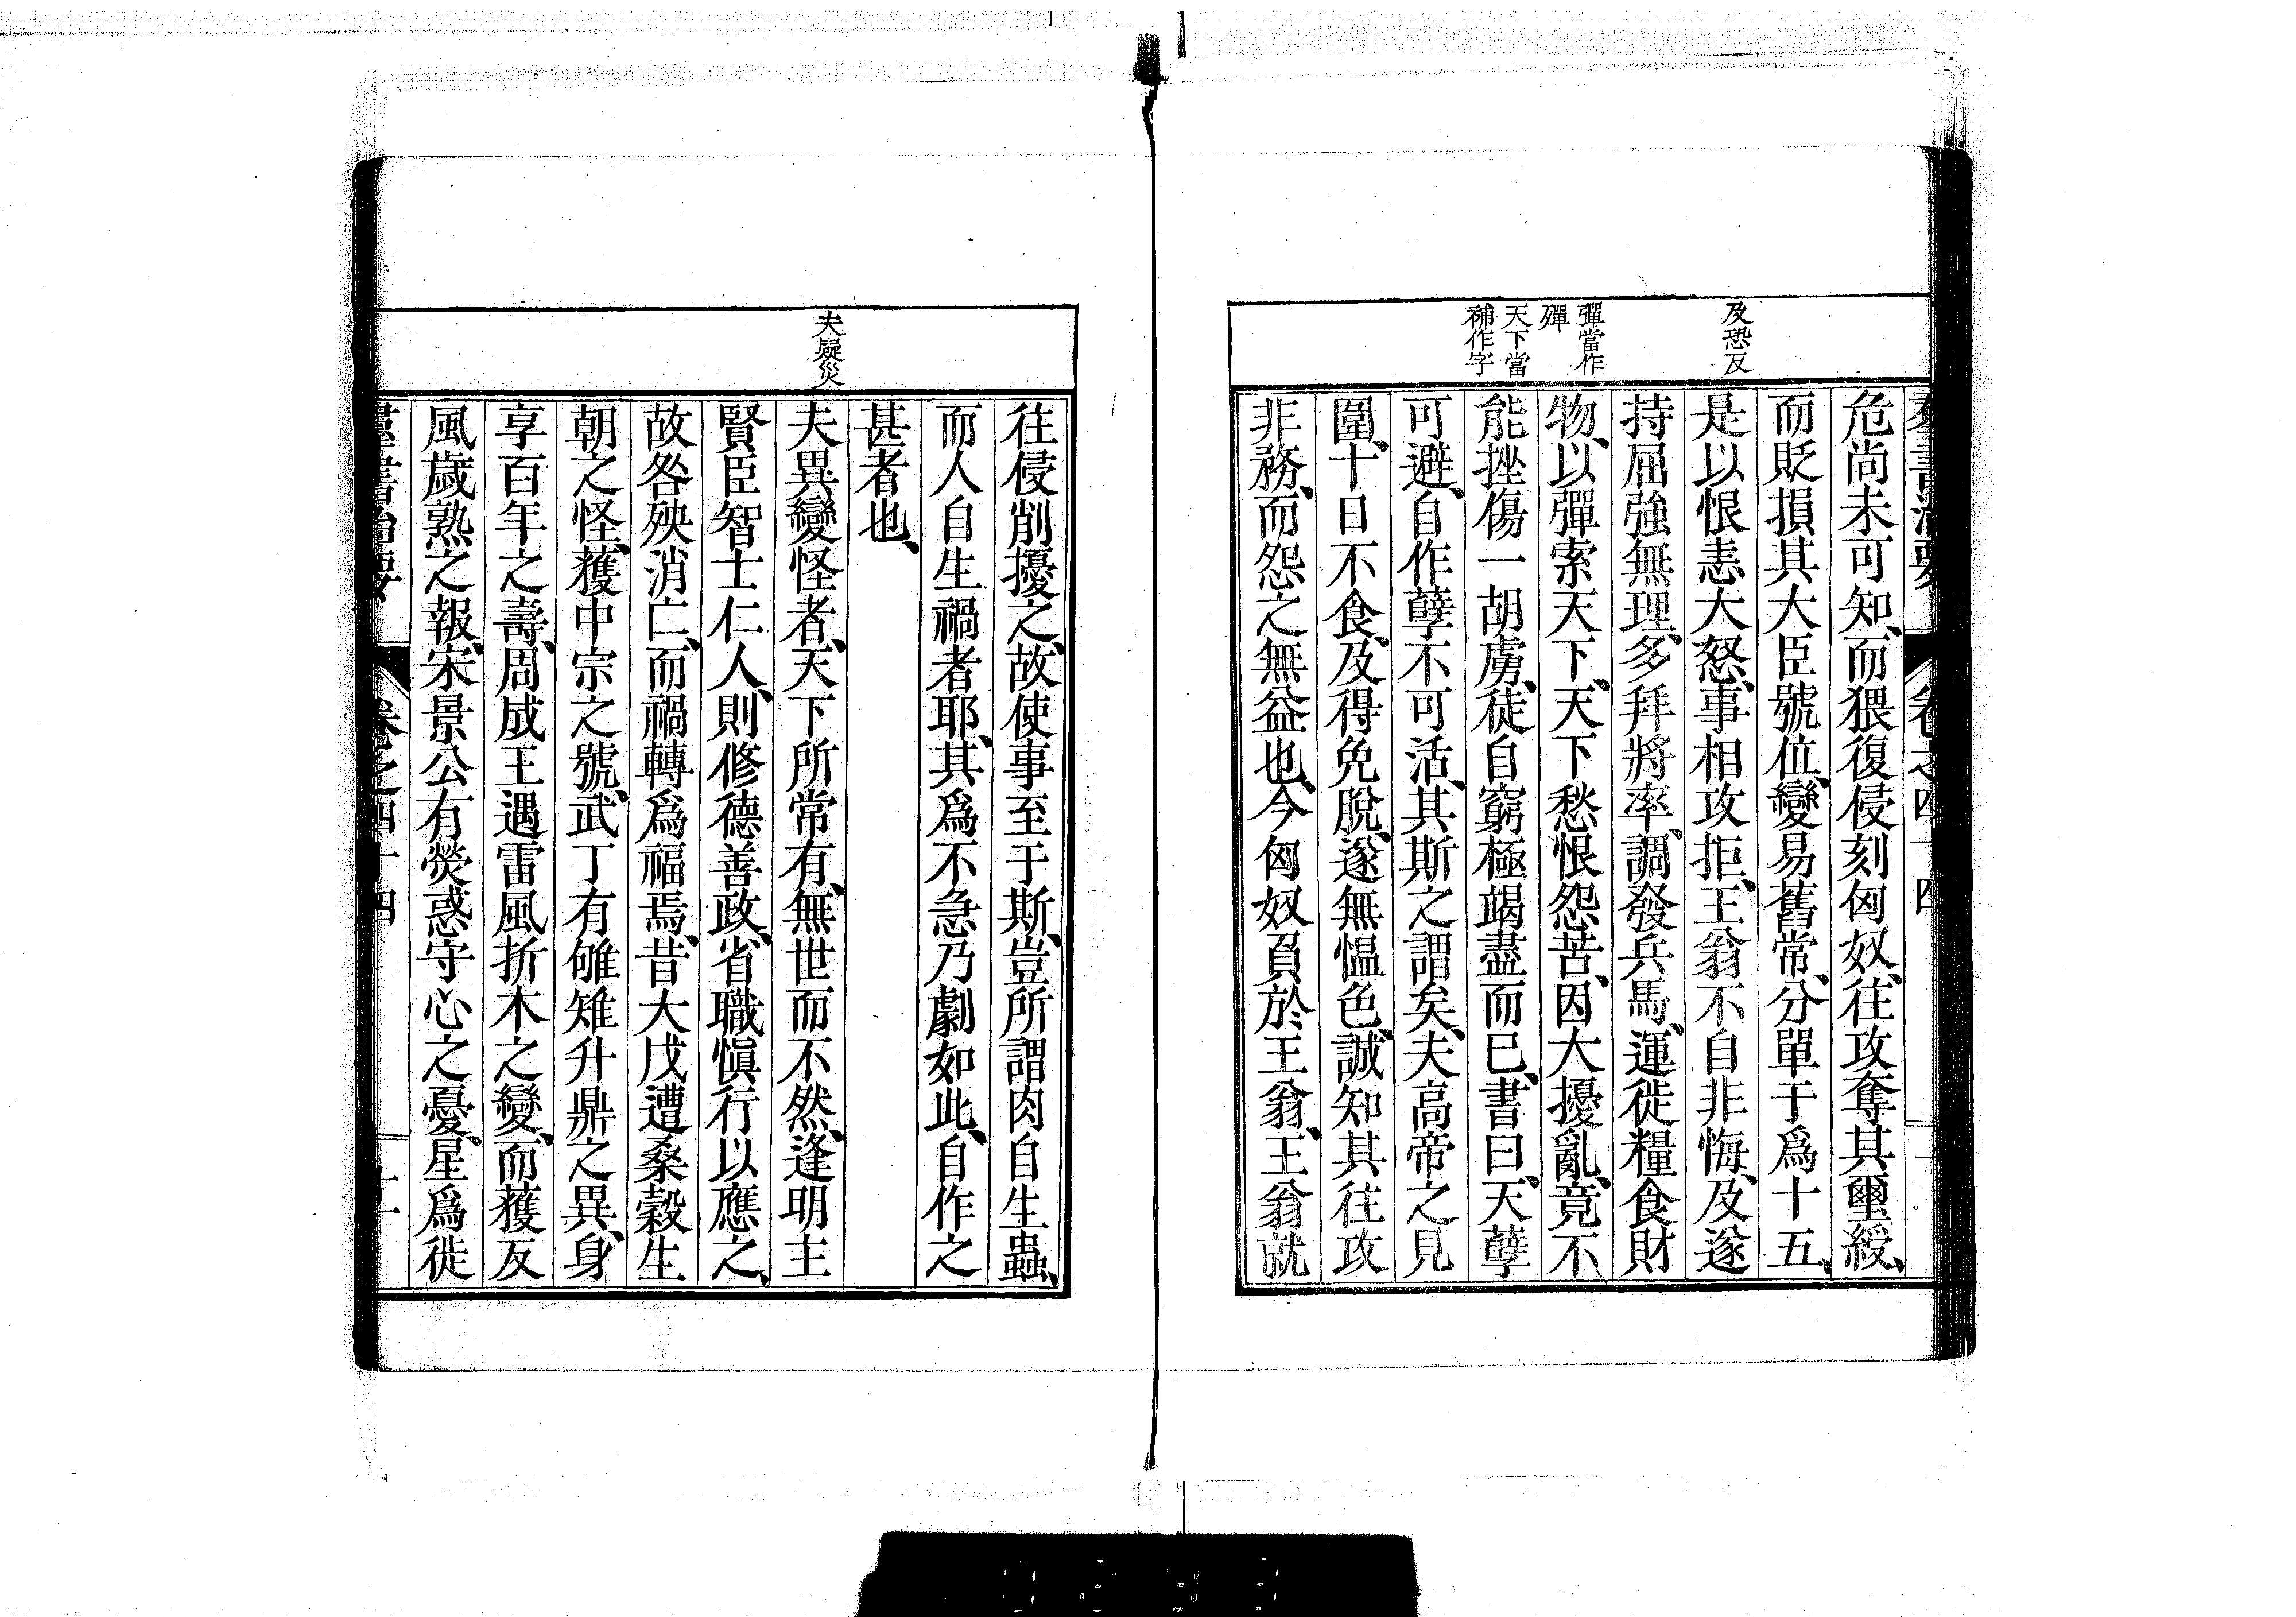 及恐反
彈當作
殫
天下當
補作字
危尚未可知、而猥復侵刻匈奴、往攻奪其璽綬、
而貶損其大臣號位、變易舊常、分單于爲十五、
是以恨恚大怒、事相攻拒、王翁不自非悔、及遂
持屈強無理、多拜將率、調發兵馬、運徙糧食財
物、以彈索天下、天下愁恨怨苦、因大擾亂、竟不
能挫傷一胡虜、徒自窮極竭盡而已、書曰、天孽
可避、自作孽不可活、其斯之謂矣、夫高帝之見
圍、十日不食、及得免脫、遂無慍色、誠知其往攻
非務、而怨之無益也、今匈奴負於王翁、王翁就
夫疑災
往侵削擾之、故使事至于斯、豈所謂肉自生蟲、
而人自生禍者耶、其爲不急乃劇如此、自作之
甚者也、
夫異變怪者、天下所常有、無世而不然、逢明主
賢臣智士仁人、則修德善政、省職慎行以應之、
故咎殃消亡、而禍轉爲福焉、昔大戊遭桑穀生
朝之怪、獲中宗之號、武丁有雊雉升鼎之異、身
享百年之壽、周成王遇雷風折木之變、而獲反
風歲熟之報、宋景公有熒惑守心之憂、星爲徙